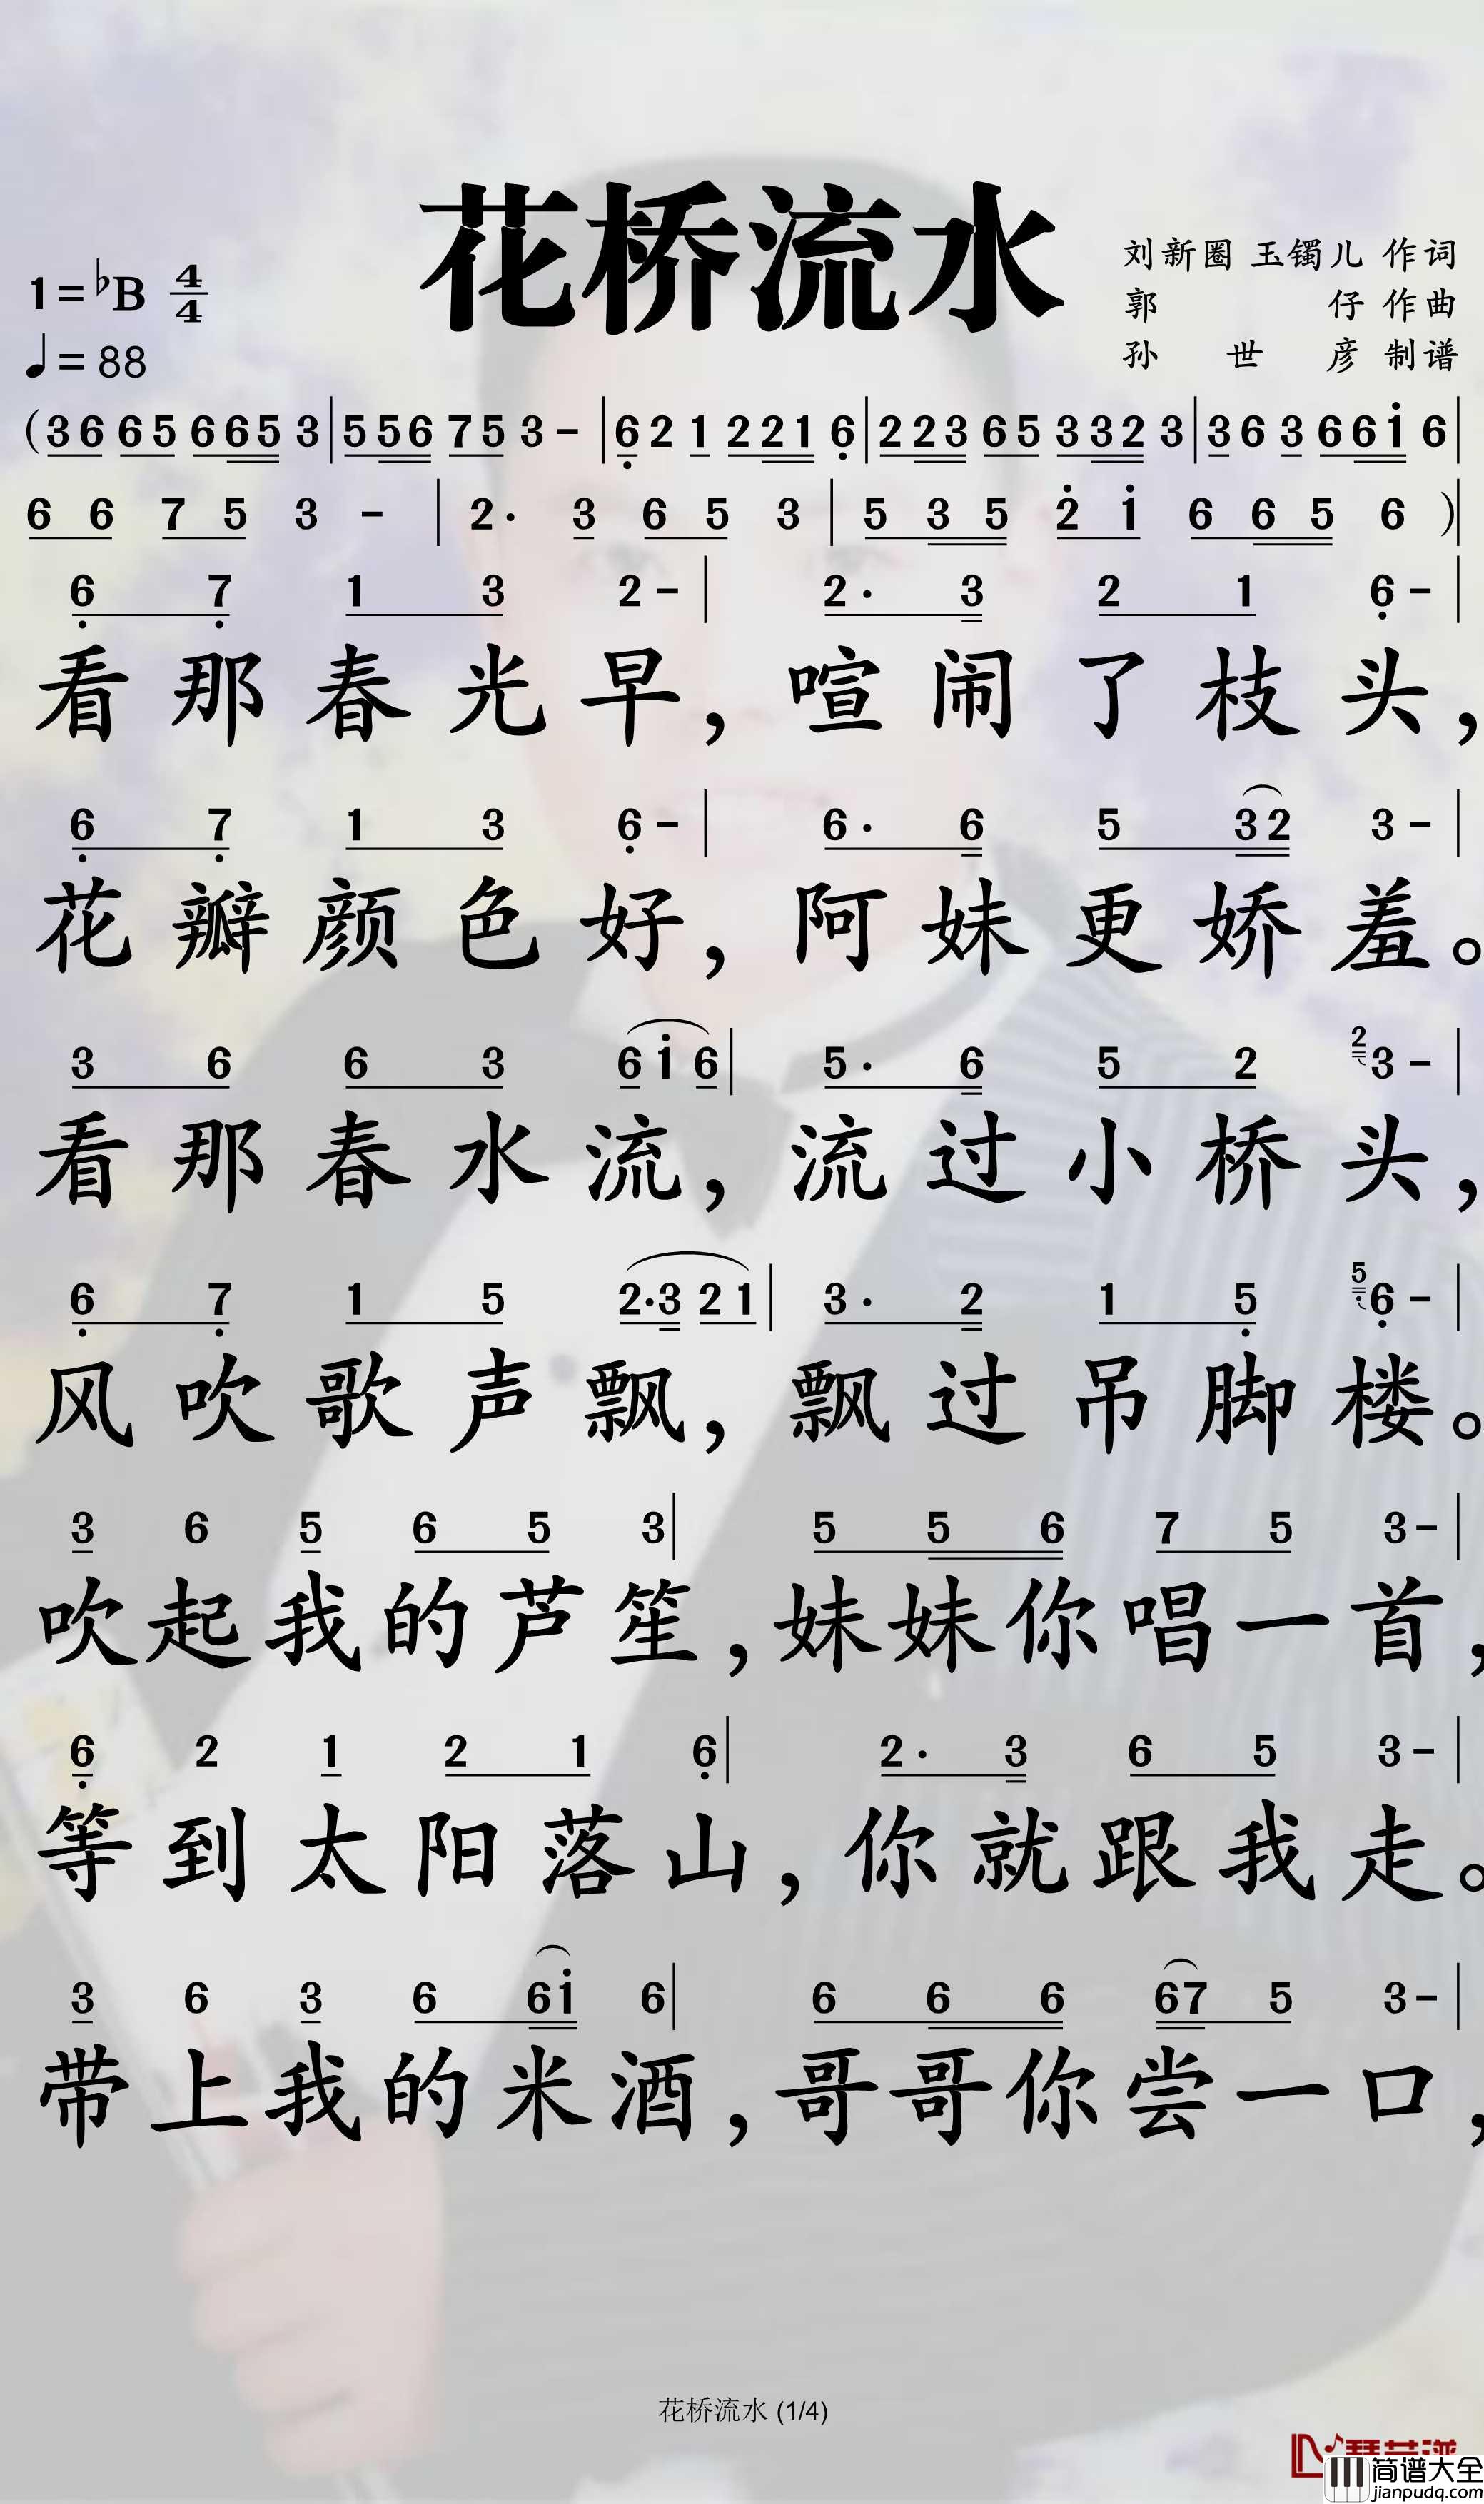 花桥流水
刘新圈 玉镯儿 作词
郭 仔 作曲
孙 世 彦 制谱
1=♭B 4/4
♩=88
(3 6 6 5 6 6 5 3 | 5 5 6 7 5 3 - | 6̣ 2 1 2 2 1 6̣ | 2 2 3 6 5 3 3 2 3 | 3 6 3 6 6 i 6 |
6 6 7 5 3 - | 2. 3 6 5 3 | 5 3 5 2̇ i 6 6 5 6 )|
6̣ 7̣ 1 3 2 - | 2. 3 2 1 6̣ - |
看那春光早，喧闹了枝头，
6̣ 7̣ 1 3 6̣ - | 6. 6 5 3 2 3 - |
花瓣颜色好，阿妹更娇羞。
3 6 6 3 6 i 6 | 5. 6 5 2 2 3 - |
看那春水流，流过小桥头，
6̣ 7̣ 1 5 2. 3 2 1 | 3. 2 1 5̣ 5̣ 6̣ - |
风吹歌声飘，飘过吊脚楼。
3 6 5 6 5 3 | 5 5 6 7 5 3 - |
吹起我的芦笙，妹妹你唱一首，
6̣ 2 1 2 1 6̣ | 2. 3 6 5 3 - |
等到太阳落山，你就跟我走。
3 6 3 6 6 i 6 | 6 6 6 6 7 5 3 - |
带上我的米酒，哥哥你尝一口，
花桥流水 (1/4)
简谱大全
jianpudq.com